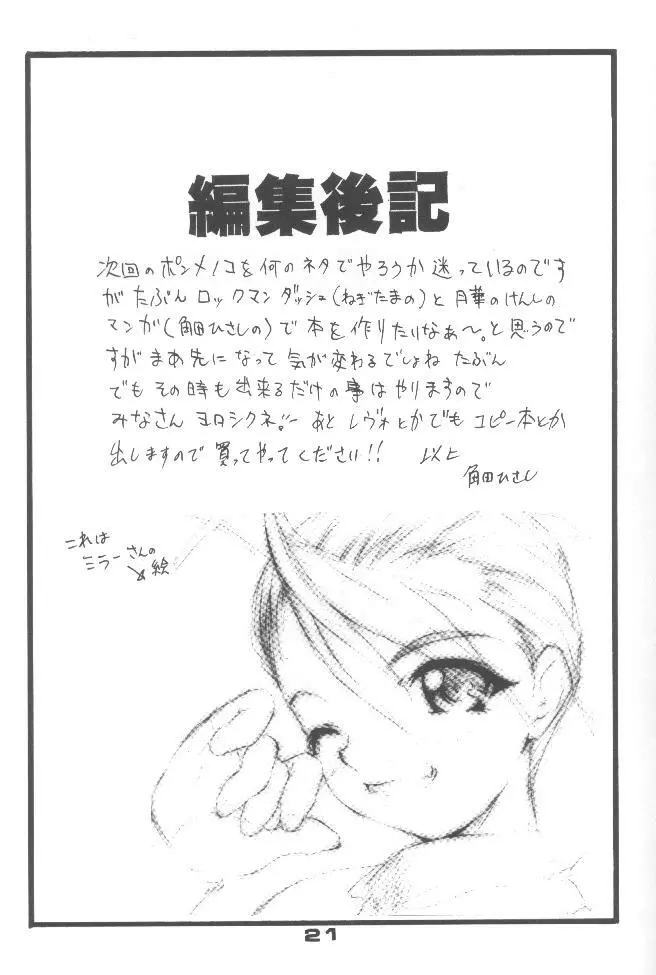 編集後記
次回のポンメノコを何のネタでやろうか迷っているのです
がたぶんロックマンダッシュ(ねぎたまの)と月華のけんしの
マンガ(角田ひさしの)で本を作りたいなぁ〜。と思うので
すがまあ先になって気が変わるでしょね たぶん
でもその時も出来るだけの事はやりますので
みなさんヨロシクネ。 あとレヴォとかでもコピー本とか
出しますので買ってやってください!! 以上
角田ひさし
これは
ミラーさんの
絵
21